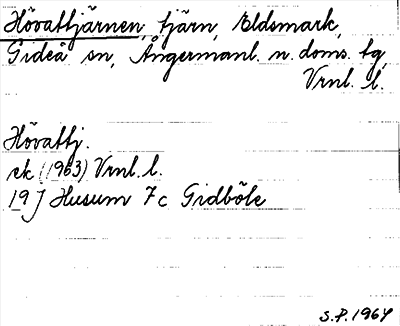 Hövattjärnen, tjärn, Eldsmark,
Gideå sn, Ångermanl. n. doms. tg,
Vrnl. l.
Hövattj.
ek (1963) Vrnl. l.
19 J Husum 7c Gidböle
S.P. 1964